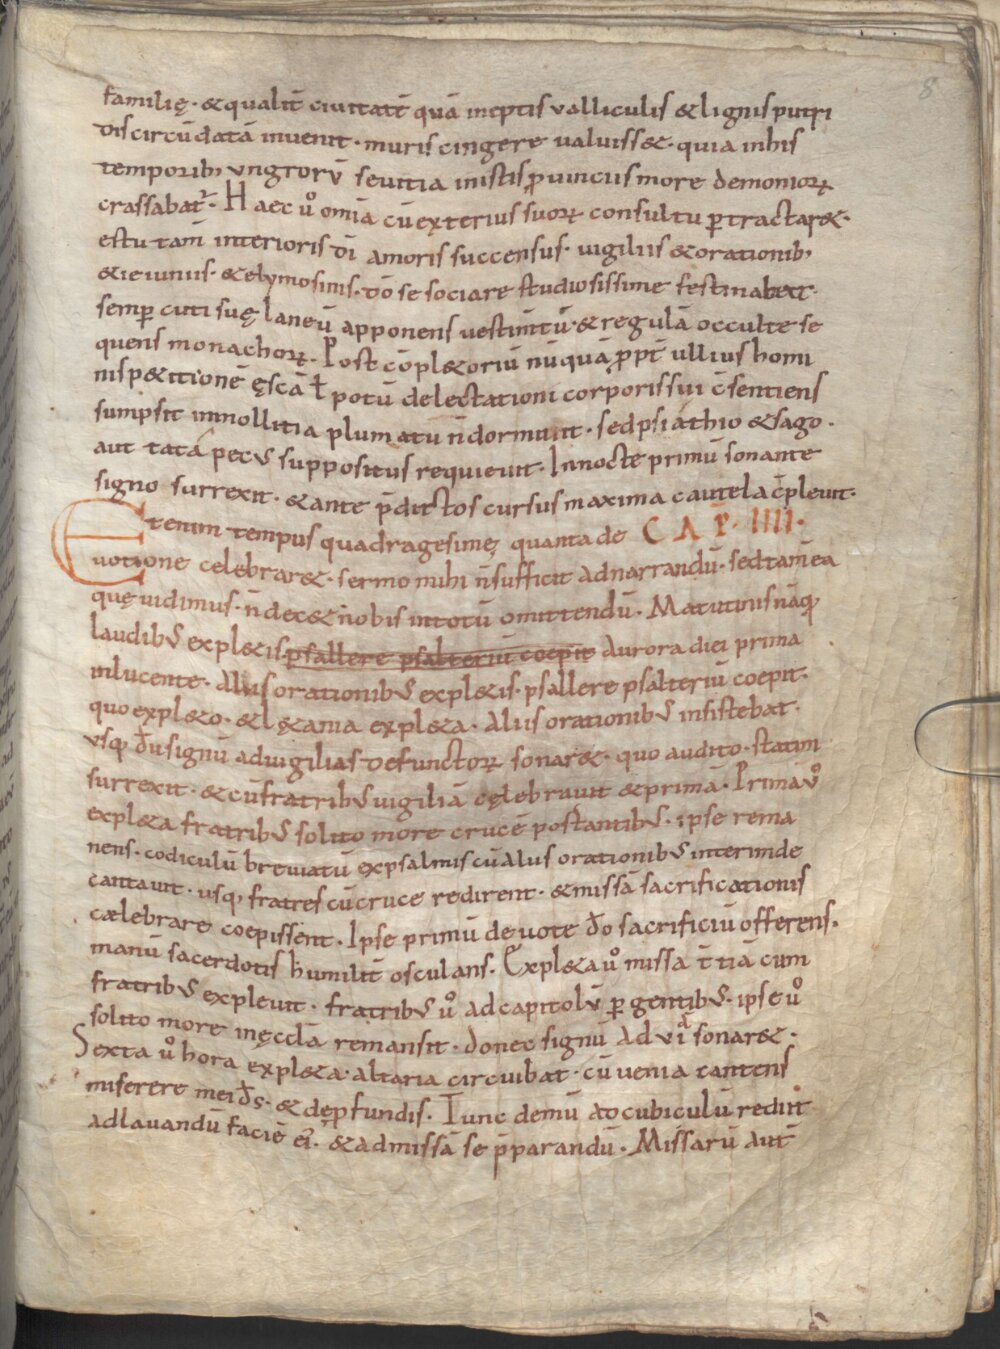 8
familię · & qualit̄ ciuitatē quā ineptis ualliculis & lignis putri
dis circūdatā inuenit · muris cingere ualuiss& · quia in his
temporib; ungrorū seuitia in istis ꝓuinciis more demoniorꝝ
crassabat᷑ · Haec ů omīa cū exterius suorꝝ consultu ꝑtractar& ·
estu tam̄ interioris dī amoris succensus · uigiliis & orationib;
& ieiuniis · & elymosinis · dō se sociare studiosissime festinabat ·
semꝑ cuti suę laneū apponens uestim̄tū · & regulā occulte se
quens monachorꝝ · Post cōpl&oriū nūquā ꝓpt̄ ullius homi
nis p&itionē ęscā ł potū delectationi corporis sui c̄sentiens
sumpsit in mollitia plumatū n̄ dormiuit · sed psiathio & sago ·
aut tatā pecū suppositus requieuit · In nocte primū sonante
signo surrexit · & ante p̄dictos cursus maxima cautela c̄pleuit ·
Etenim tempus quadragesimę quanta de CAP̄ · IIII ·
uotione celebrar& · sermo mihi n̄ sufficit ad narrandū · sed tam̄ ea
quę uidimus · n̄ dec& nobis in totū omittendū · Matutinis nāq;
laudibus expl&is psallere psalteriū coepit Aurora diei prima
inlucente · Aliis orationibus expl&is · psallere psalteriū coepit ·
quo expl&o · & l&ania expl&a · Aliis orationibus insistebat ·
usq; dū signū ad uigilias defunctorꝝ sonar& · quo audito · statim
surrexit · & cū fratribus uigiliā cęlebrauit & primā · Prima ů
expl&a fratribus solito more crucē portantibus · ipse rema
nens · codiculū breuiatū ex psalmis cū aliis orationibus interimde
cantauit · usq; fratres cū cruce redirent · & missā sacrificationis
cælebrare coepissent · Ipse primū deuote dō sacrificiū offerens ·
manū sacerdotis humilit̄ osculans · Expl&a ů missa t̄tiā cum
fratribus expleuit · fratribus ů ad capitolū ꝑgentibus · ipse ů
solito more in ęccla remansit · donec signū ad vi sonar& ·
Sexta ů hora expl&a · altaria circuibat · cū uenia cantens
miserere mei ds̄ · & de ꝓfundis · Tunc demū ad cubiculū rediit
ad lauandū faciē ei᷑ · & ad missā se p̄parandū · Missarū aut̄